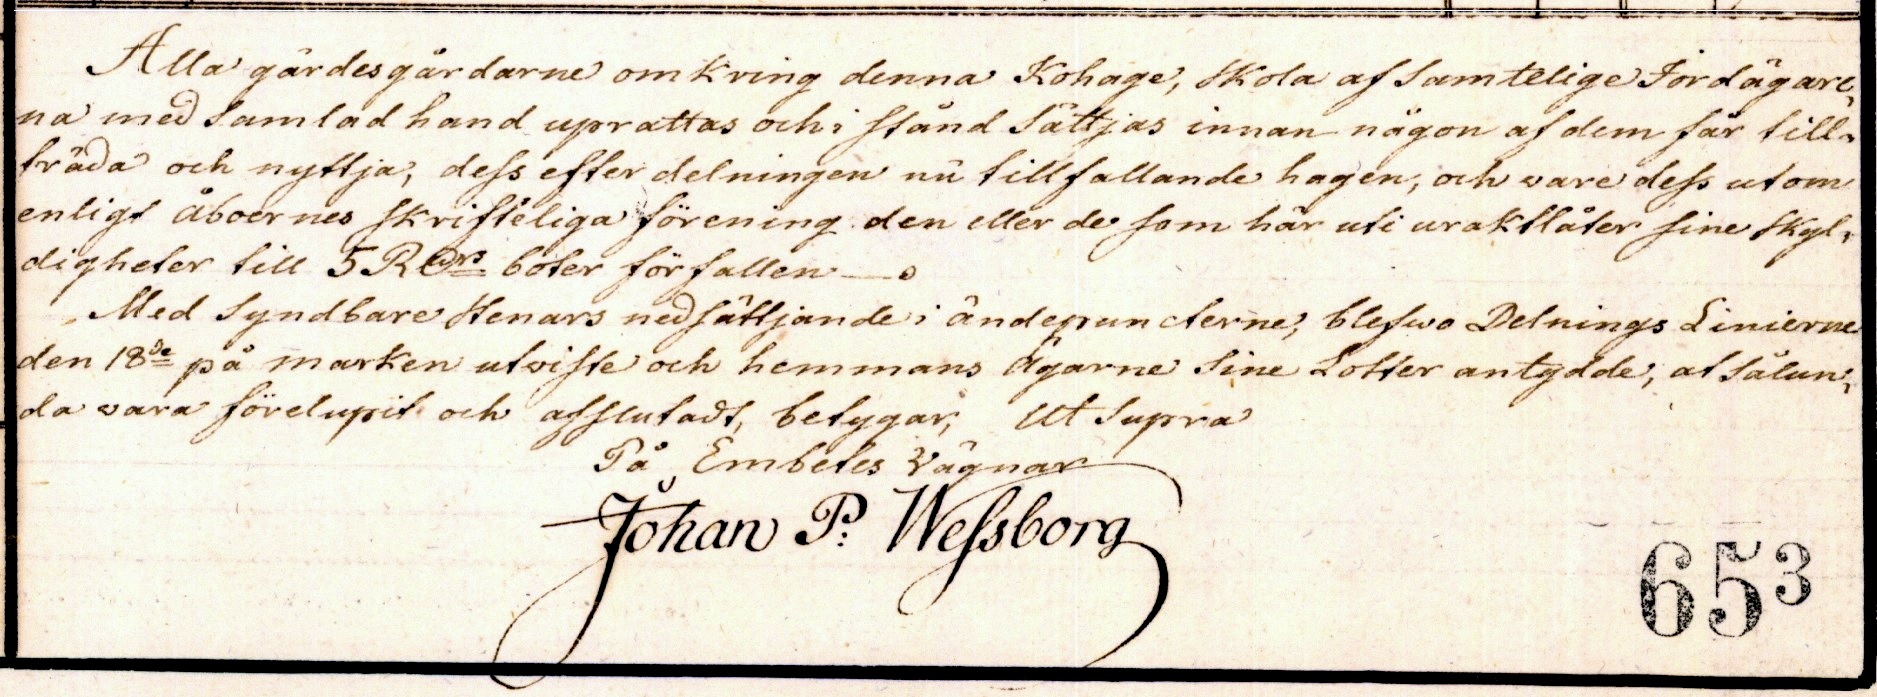 Alla gärdesgårdarne omkring denna Kohage, skola af samtelige Jordägare,
na med samlad hand uprättas och i stånd sättjas innan någon af dem får till,
träda och nyttja, dess efter delningen nu tillfallande hagen, och vare dess utom
enligt Åboernes skrifteliga förening den eller de som här uti uraktlåter sine skyl,
digheter till 5 R Drs böter förfallen —
Med Syndbare Stenars nedsättjande i ändepuncterne, blefwo Delnings Linierne
den 18de på marken utviste och hemmans Ägarne sine Lotter antydde, at sålun,
da vara förelupit och afslutadt, betygar, Ut Supra
På Embetes Vägnar
Johan P: Wessborg
653